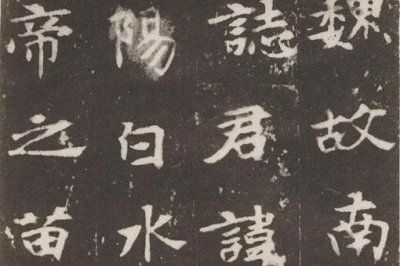 魏故南
誌君諱
陽白水
帝之苗